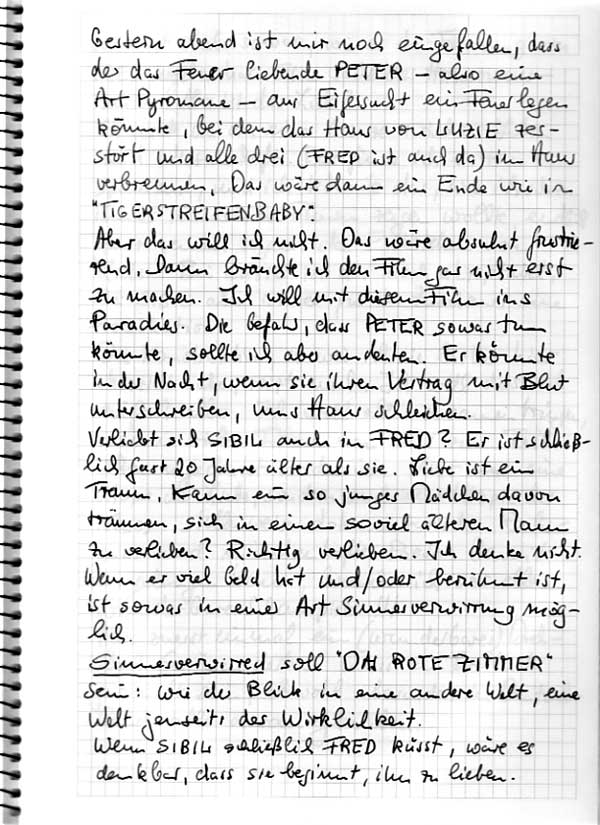 Gestern abend ist mir noch eingefallen, dass
der das Feuer liebende PETER – also eine
Art Pyromane – aus Eifersucht ein Feuer legen
könnte, bei dem das Haus von LUZIE zer-
stört und alle drei (FRED ist auch da) im Haus
verbrennen. Das wäre dann ein Ende wie in
"TIGERSTREIFENBABY".
Aber das will ich nicht. Das wäre absolut frustrie-
rend. Dann bräuchte ich den Film gar nicht erst
zu machen. Ich will mit diesem Film ins
Paradies. Die Gefahr, dass PETER sowas tun
könnte, sollte ich aber andeuten. Er könnte
in der Nacht, wenn sie ihren Vertrag mit Blut
unterschreiben, ums Haus schleichen.
Verliebt sich SIBIL auch in FRED? Er ist schließ-
lich fast 20 Jahre älter als sie. Liebe ist ein
Traum. Kann ein so junges Mädchen davon
träumen, sich in einen soviel älteren Mann
zu verlieben? Richtig verlieben. Ich denke nicht.
Wenn er viel Geld hat und/oder berühmt ist,
ist sowas in einer Art Sinnesverwirrung mög-
lich.
Sinnesverwirred soll "DAS ROTE ZIMMER"
sein: wie der Blick in eine andere Welt, eine
Welt jenseits der Wirklichkeit.
Wenn SIBIL schließlich FRED küsst, wäre es
denkbar, dass sie beginnt, ihn zu lieben.